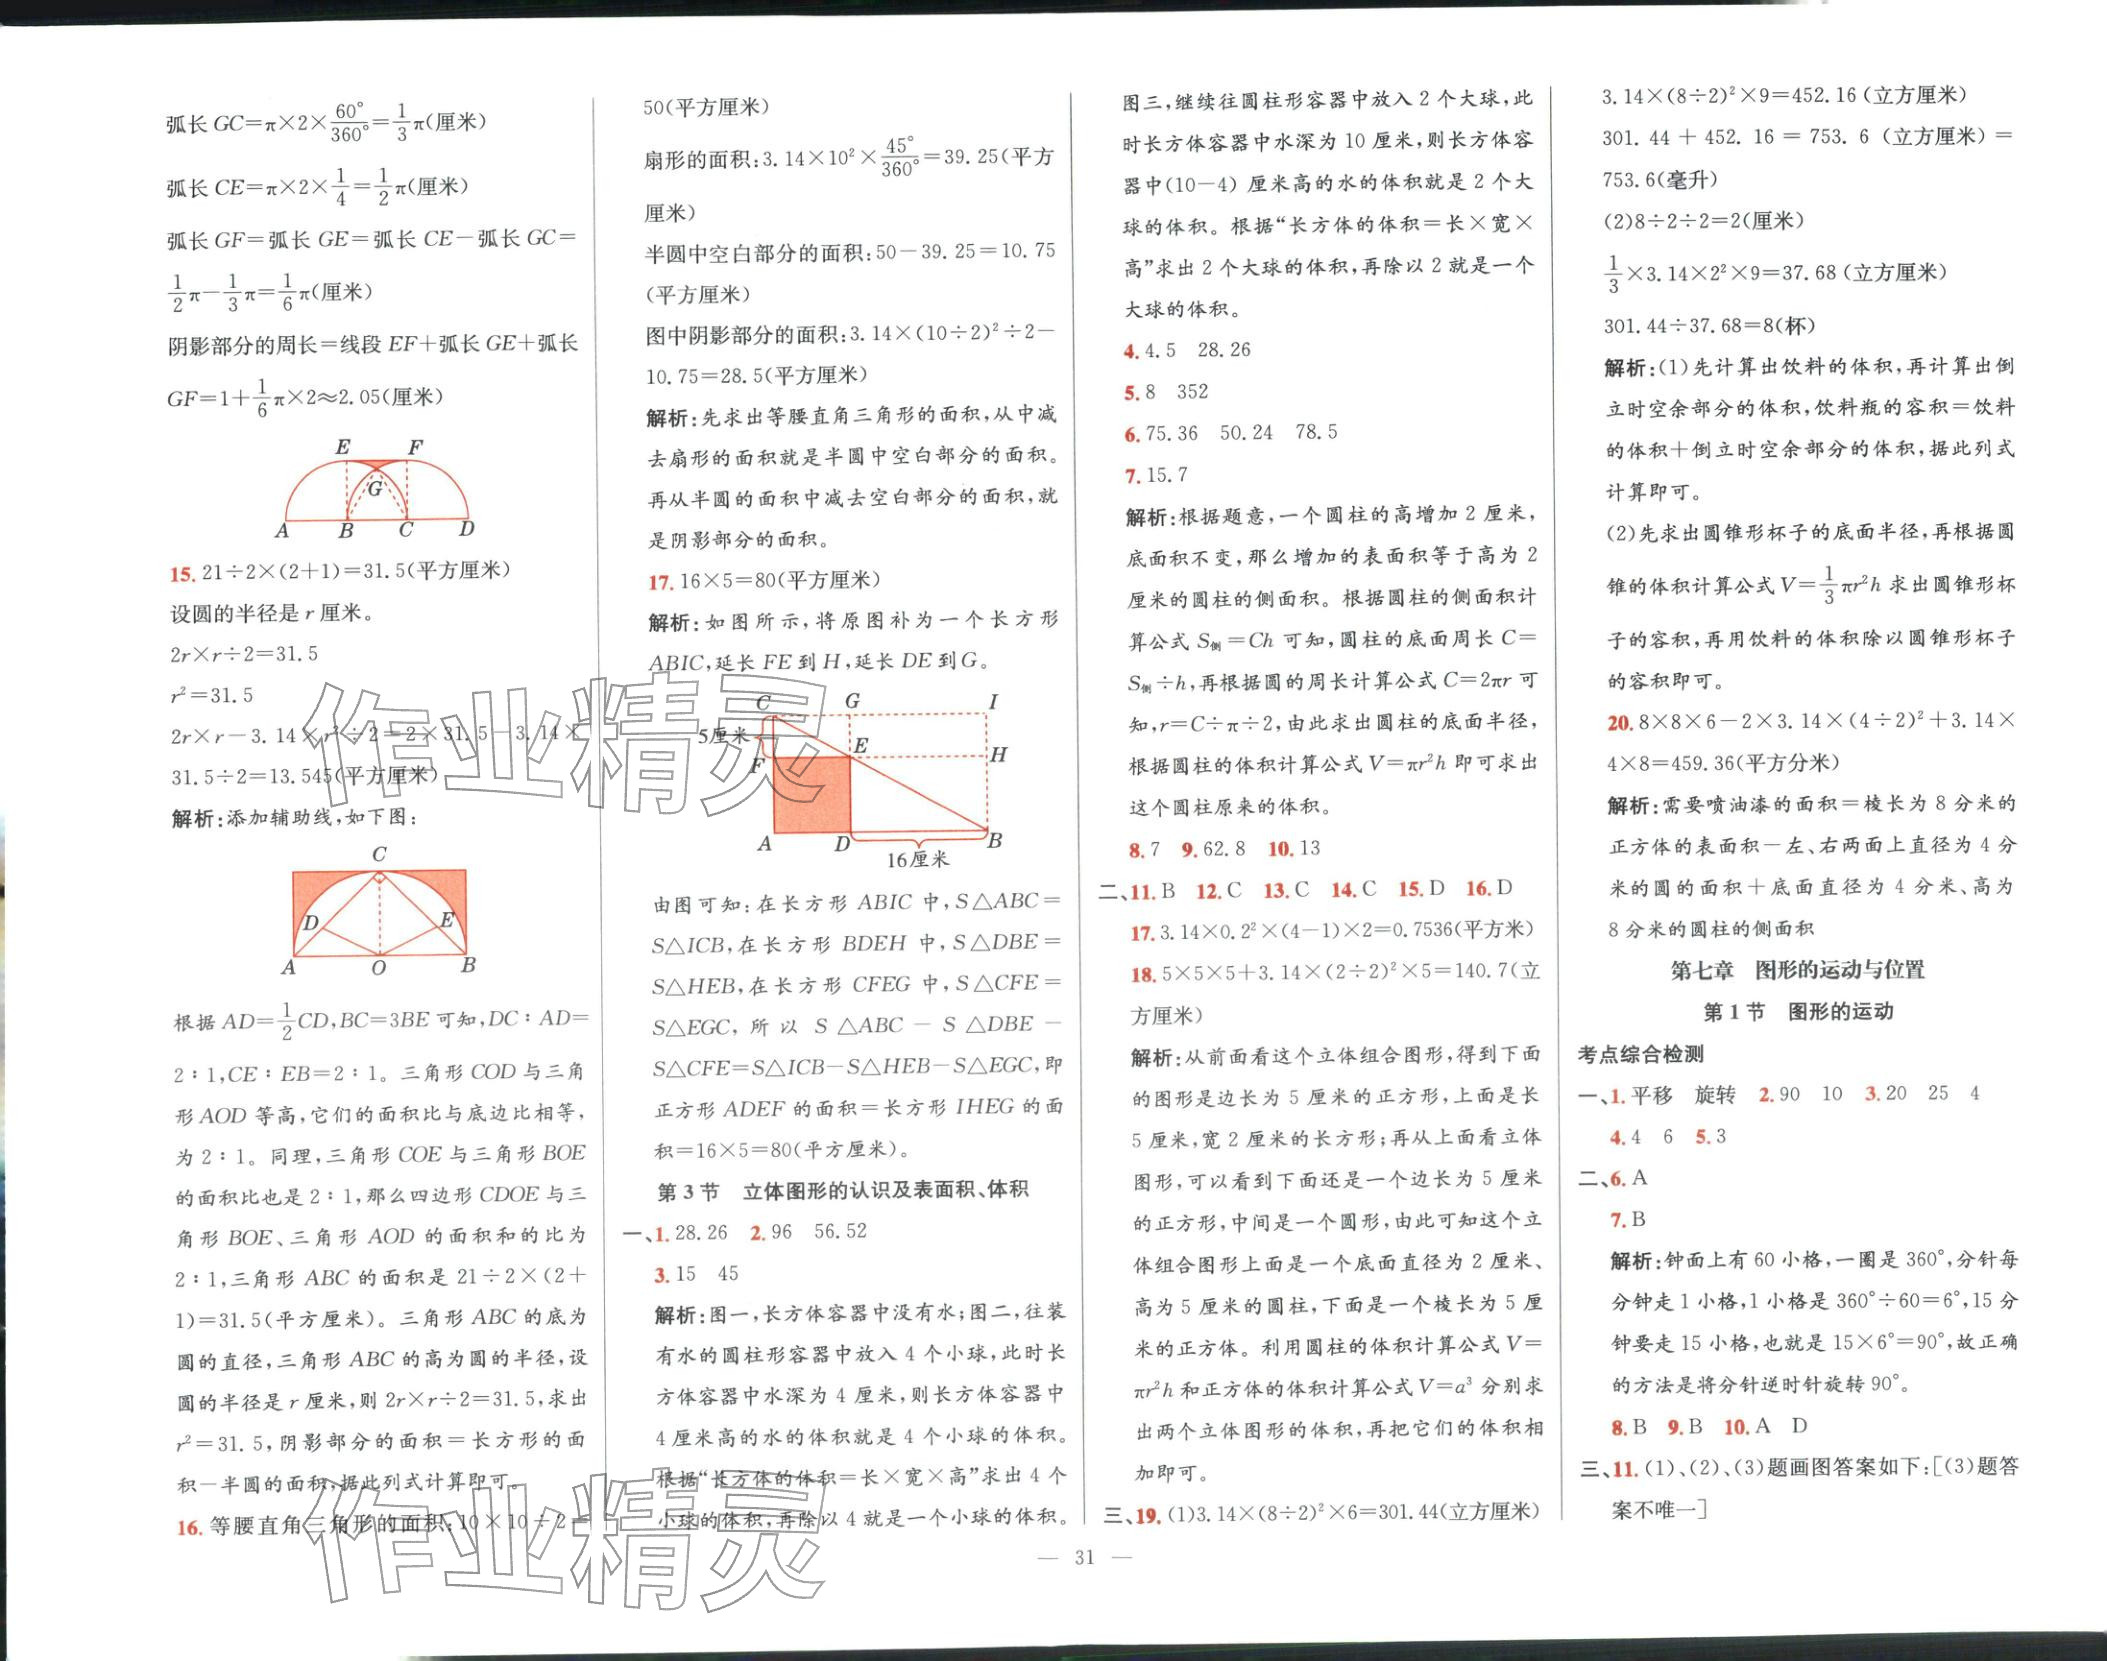 弧长 GC=π×2×60°/360°=1/3π(厘米)
弧长 CE=π×2×1/4=1/2π(厘米)
弧长 GF=弧长 GE=弧长 CE-弧长 GC=
1/2π-1/3π=1/6π(厘米)
阴影部分的周长=线段 EF+弧长 GE+弧长
GF=1+1/6π×2≈2.05(厘米)
E F
G
A B C D
15. 21÷2×(2+1)=31.5(平方厘米)
设圆的半径是 r 厘米。
2r×r÷2=31.5
r²=31.5
2r×r-3.14×r²÷2=2×31.5-3.14×
31.5÷2=13.545(平方厘米)
解析:添加辅助线,如下图:
C
D E
A O B
根据 AD=1/2CD,BC=3BE 可知,DC∶AD=
2∶1,CE∶EB=2∶1。三角形 COD 与三角
形 AOD 等高,它们的面积比与底边比相等,
为 2∶1。同理,三角形 COE 与三角形 BOE
的面积比也是 2∶1,那么四边形 CDOE 与三
角形 BOE、三角形 AOD 的面积和的比为
2∶1,三角形 ABC 的面积是 21÷2×(2+
1)=31.5(平方厘米)。三角形 ABC 的底为
圆的直径,三角形 ABC 的高为圆的半径,设
圆的半径是 r 厘米,则 2r×r÷2=31.5,求出
r²=31.5,阴影部分的面积=长方形的面
积-半圆的面积,据此列式计算即可。
16. 等腰直角三角形的面积:10×10÷2=
50(平方厘米)
扇形的面积:3.14×10²×45°/360°=39.25(平方
厘米)
半圆中空白部分的面积:50-39.25=10.75
(平方厘米)
图中阴影部分的面积:3.14×(10÷2)²÷2-
10.75=28.5(平方厘米)
解析:先求出等腰直角三角形的面积,从中减
去扇形的面积就是半圆中空白部分的面积。
再从半圆的面积中减去空白部分的面积,就
是阴影部分的面积。
17. 16×5=80(平方厘米)
解析:如图所示,将原图补为一个长方形
ABIC,延长 FE 到 H,延长 DE 到 G。
C G I
5厘米
F E H
A D B
16厘米
由图可知:在长方形 ABIC 中,S△ABC=
S△ICB,在长方形 BDEH 中,S△DBE=
S△HEB,在长方形 CFEG 中,S△CFE=
S△EGC,所以 S△ABC-S△DBE-
S△CFE=S△ICB-S△HEB-S△EGC,即
正方形 ADEF 的面积=长方形 IHEG 的面
积=16×5=80(平方厘米)。
第 3 节 立体图形的认识及表面积、体积
一、1. 28.26 2. 96 56.52
3. 15 45
解析:图一,长方体容器中没有水;图二,往装
有水的圆柱形容器中放入 4 个小球,此时长
方体容器中水深为 4 厘米,则长方体容器中
4 厘米高的水的体积就是 4 个小球的体积。
根据“长方体的体积=长×宽×高”求出 4 个
小球的体积,再除以 4 就是一个小球的体积。
图三,继续往圆柱形容器中放入 2 个大球,此
时长方体容器中水深为 10 厘米,则长方体容
器中(10-4) 厘米高的水的体积就是 2 个大
球的体积。根据“长方体的体积=长×宽×
高”求出 2 个大球的体积,再除以 2 就是一个
大球的体积。
4. 4.5 28.26
5. 8 352
6. 75.36 50.24 78.5
7. 15.7
解析:根据题意,一个圆柱的高增加 2 厘米,
底面积不变,那么增加的表面积等于高为 2
厘米的圆柱的侧面积。根据圆柱的侧面积计
算公式 S侧=Ch 可知,圆柱的底面周长 C=
S侧÷h,再根据圆的周长计算公式 C=2πr 可
知,r=C÷π÷2,由此求出圆柱的底面半径,
根据圆柱的体积计算公式 V=πr²h 即可求出
这个圆柱原来的体积。
8. 7 9. 62.8 10. 13
二、11. B 12. C 13. C 14. C 15. D 16. D
17. 3.14×0.2²×(4-1)×2=0.7536(平方米)
18. 5×5×5+3.14×(2÷2)²×5=140.7(立
方厘米)
解析:从前面看这个立体组合图形,得到下面
的图形是边长为 5 厘米的正方形,上面是长
5 厘米,宽 2 厘米的长方形;再从上面看立体
图形,可以看到下面还是一个边长为 5 厘米
的正方形,中间是一个圆形,由此可知这个立
体组合图形上面是一个底面直径为 2 厘米、
高为 5 厘米的圆柱,下面是一个棱长为 5 厘
米的正方体。利用圆柱的体积计算公式 V=
πr²h 和正方体的体积计算公式 V=a³ 分别求
出两个立体图形的体积,再把它们的体积相
加即可。
三、19. (1)3.14×(8÷2)²×6=301.44(立方厘米)
3.14×(8÷2)²×9=452.16(立方厘米)
301.44+452.16=753.6(立方厘米)=
753.6(毫升)
(2)8÷2÷2=2(厘米)
1/3×3.14×2²×9=37.68(立方厘米)
301.44÷37.68=8(杯)
解析:(1)先计算出饮料的体积,再计算出倒
立时空余部分的体积,饮料瓶的容积=饮料
的体积+倒立时空余部分的体积,据此列式
计算即可。
(2)先求出圆锥形杯子的底面半径,再根据圆
锥的体积计算公式 V=1/3πr²h 求出圆锥形杯
子的容积,再用饮料的体积除以圆锥形杯子
的容积即可。
20. 8×8×6-2×3.14×(4÷2)²+3.14×
4×8=459.36(平方分米)
解析:需要喷油漆的面积=棱长为 8 分米的
正方体的表面积-左、右两面上直径为 4 分
米的圆的面积+底面直径为 4 分米、高为
8 分米的圆柱的侧面积
第七章 图形的运动与位置
第 1 节 图形的运动
考点综合检测
一、1. 平移 旋转 2. 90 10 3. 20 25 4
4. 4 6 5. 3
二、6. A
7. B
解析:钟面上有 60 小格,一圈是 360°,分针每
分钟走 1 小格,1 小格是 360°÷60=6°,15 分
钟要走 15 小格,也就是 15×6°=90°,故正确
的方法是将分针逆时针旋转 90°。
8. B 9. B 10. A D
三、11. (1)、(2)、(3)题画图答案如下:[(3)题答
案不唯一]
— 31 —
作业精灵
作业精灵